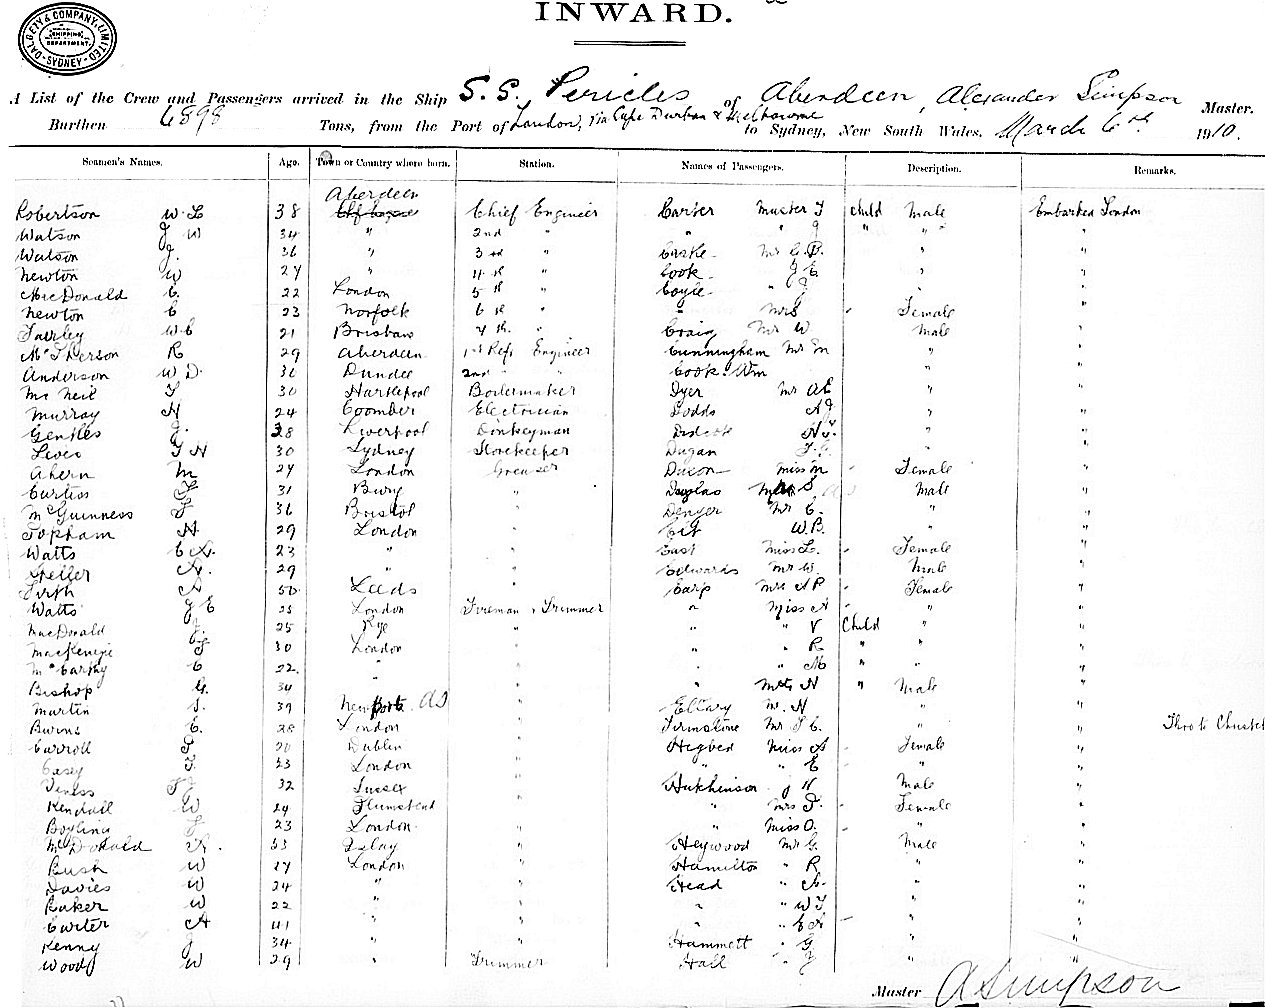 INWARD.
DALGETY & COMPANY, LIMITED
SHIPPING DEPARTMENT.
SYDNEY
A List of the Crew and Passengers arrived in the Ship S.S. Pericles of Aberdeen, Alexander Simpson Master.
Burthen 6898 Tons, from the Port of London, via Cape Durban & Melbourne to Sydney, New South Wales, March 6th 1910.
Seamen's Names. Age. Town or Country where born. Station. Names of Passengers. Description. Remarks.
Aberdeen
Robertson W. L 38 Chief Engineer Carter Master J child Male Embarked London
Watson J W 34 " 2nd " " " J " " "
Watson J. 36 " 3rd " Caske Mr C. B. " "
Newton W 27 " 4th " Cook " " "
MacDonald C. 22 London 5th " Coyle " J " "
Newton C 23 Norfolk 6th " " Mrs Female "
Fairley W C 21 Brisbane 7th. " Craig Mr W Male "
McPherson R 29 Aberdeen 1st Refr Engineer Cunningham Mr M " "
Anderson W D. 31 Dundee 2nd " " Cook. Wm " "
Mc Neil 30 Hartlepool Boilermaker Dyer Mr A E " "
Murray H 24 Coomber Electrician Dodds A J " "
Gentles J. 38 Liverpool Donkeyman H J. " "
30 Sydney Storekeeper Dugan " "
Ahern M 27 London Greaser Dixon Miss M Female "
Curtiss 31 Bury " Douglas S Male "
McGuinness 36 Bristol " Denyer Mr C. " "
Topham A. 29 London " W. B. " "
Watts C A. 23 " " East Miss L. Female "
A. 29 " " Edwards Mr W. Male "
Firth A 50 Leeds " Earp Mrs A P Female "
Watts J E 25 London Fireman & Trimmer " Miss A " "
MacDonald 25 Rye " " " V Child " "
MacKenzie 30 London " " " R " " "
McCarthy C 22. " " " " M " " "
Bishop G. 34 " " " Mstr N " Male "
Martin S. 39 Newport. AS " Mr. H " "
Burns C. 28 London " Firmstone Mr S C. " " Thro to Christch
Carroll 20 Dublin " Higbed Miss A Female "
Casey 23 London " " " E " "
Veness 32 Sussex " Hutchinson J H Male "
Kendall W 24 Plumstead " " Mrs Female "
Boyling 23 London " " Miss O. " "
McDonald A. 53 Islay " Heywood Mr G. Male "
Bush W 27 London " Hamilton " R " "
Davies W 24 " " Head " A. " "
Baker W 22 " " " " W J " "
Carter A 41 " " " " E A " "
Kenny J 34 " " Hammett " G " "
Woods W 29 " Trimmer Hall " J " "
Master A Simpson